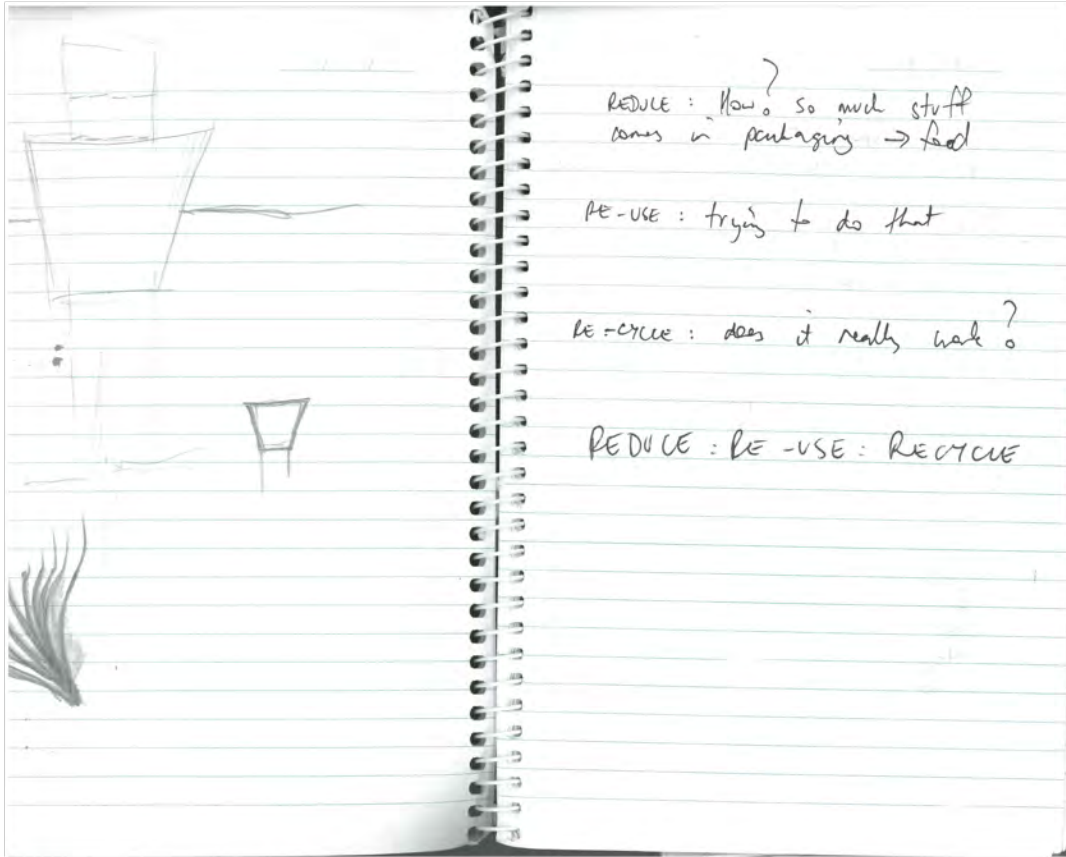 REDUCE : How? so much stuff
comes in packaging → food
RE-USE : trying to do that
RE-CYCLE : does it really work?
REDUCE : RE-USE : RECYCLE